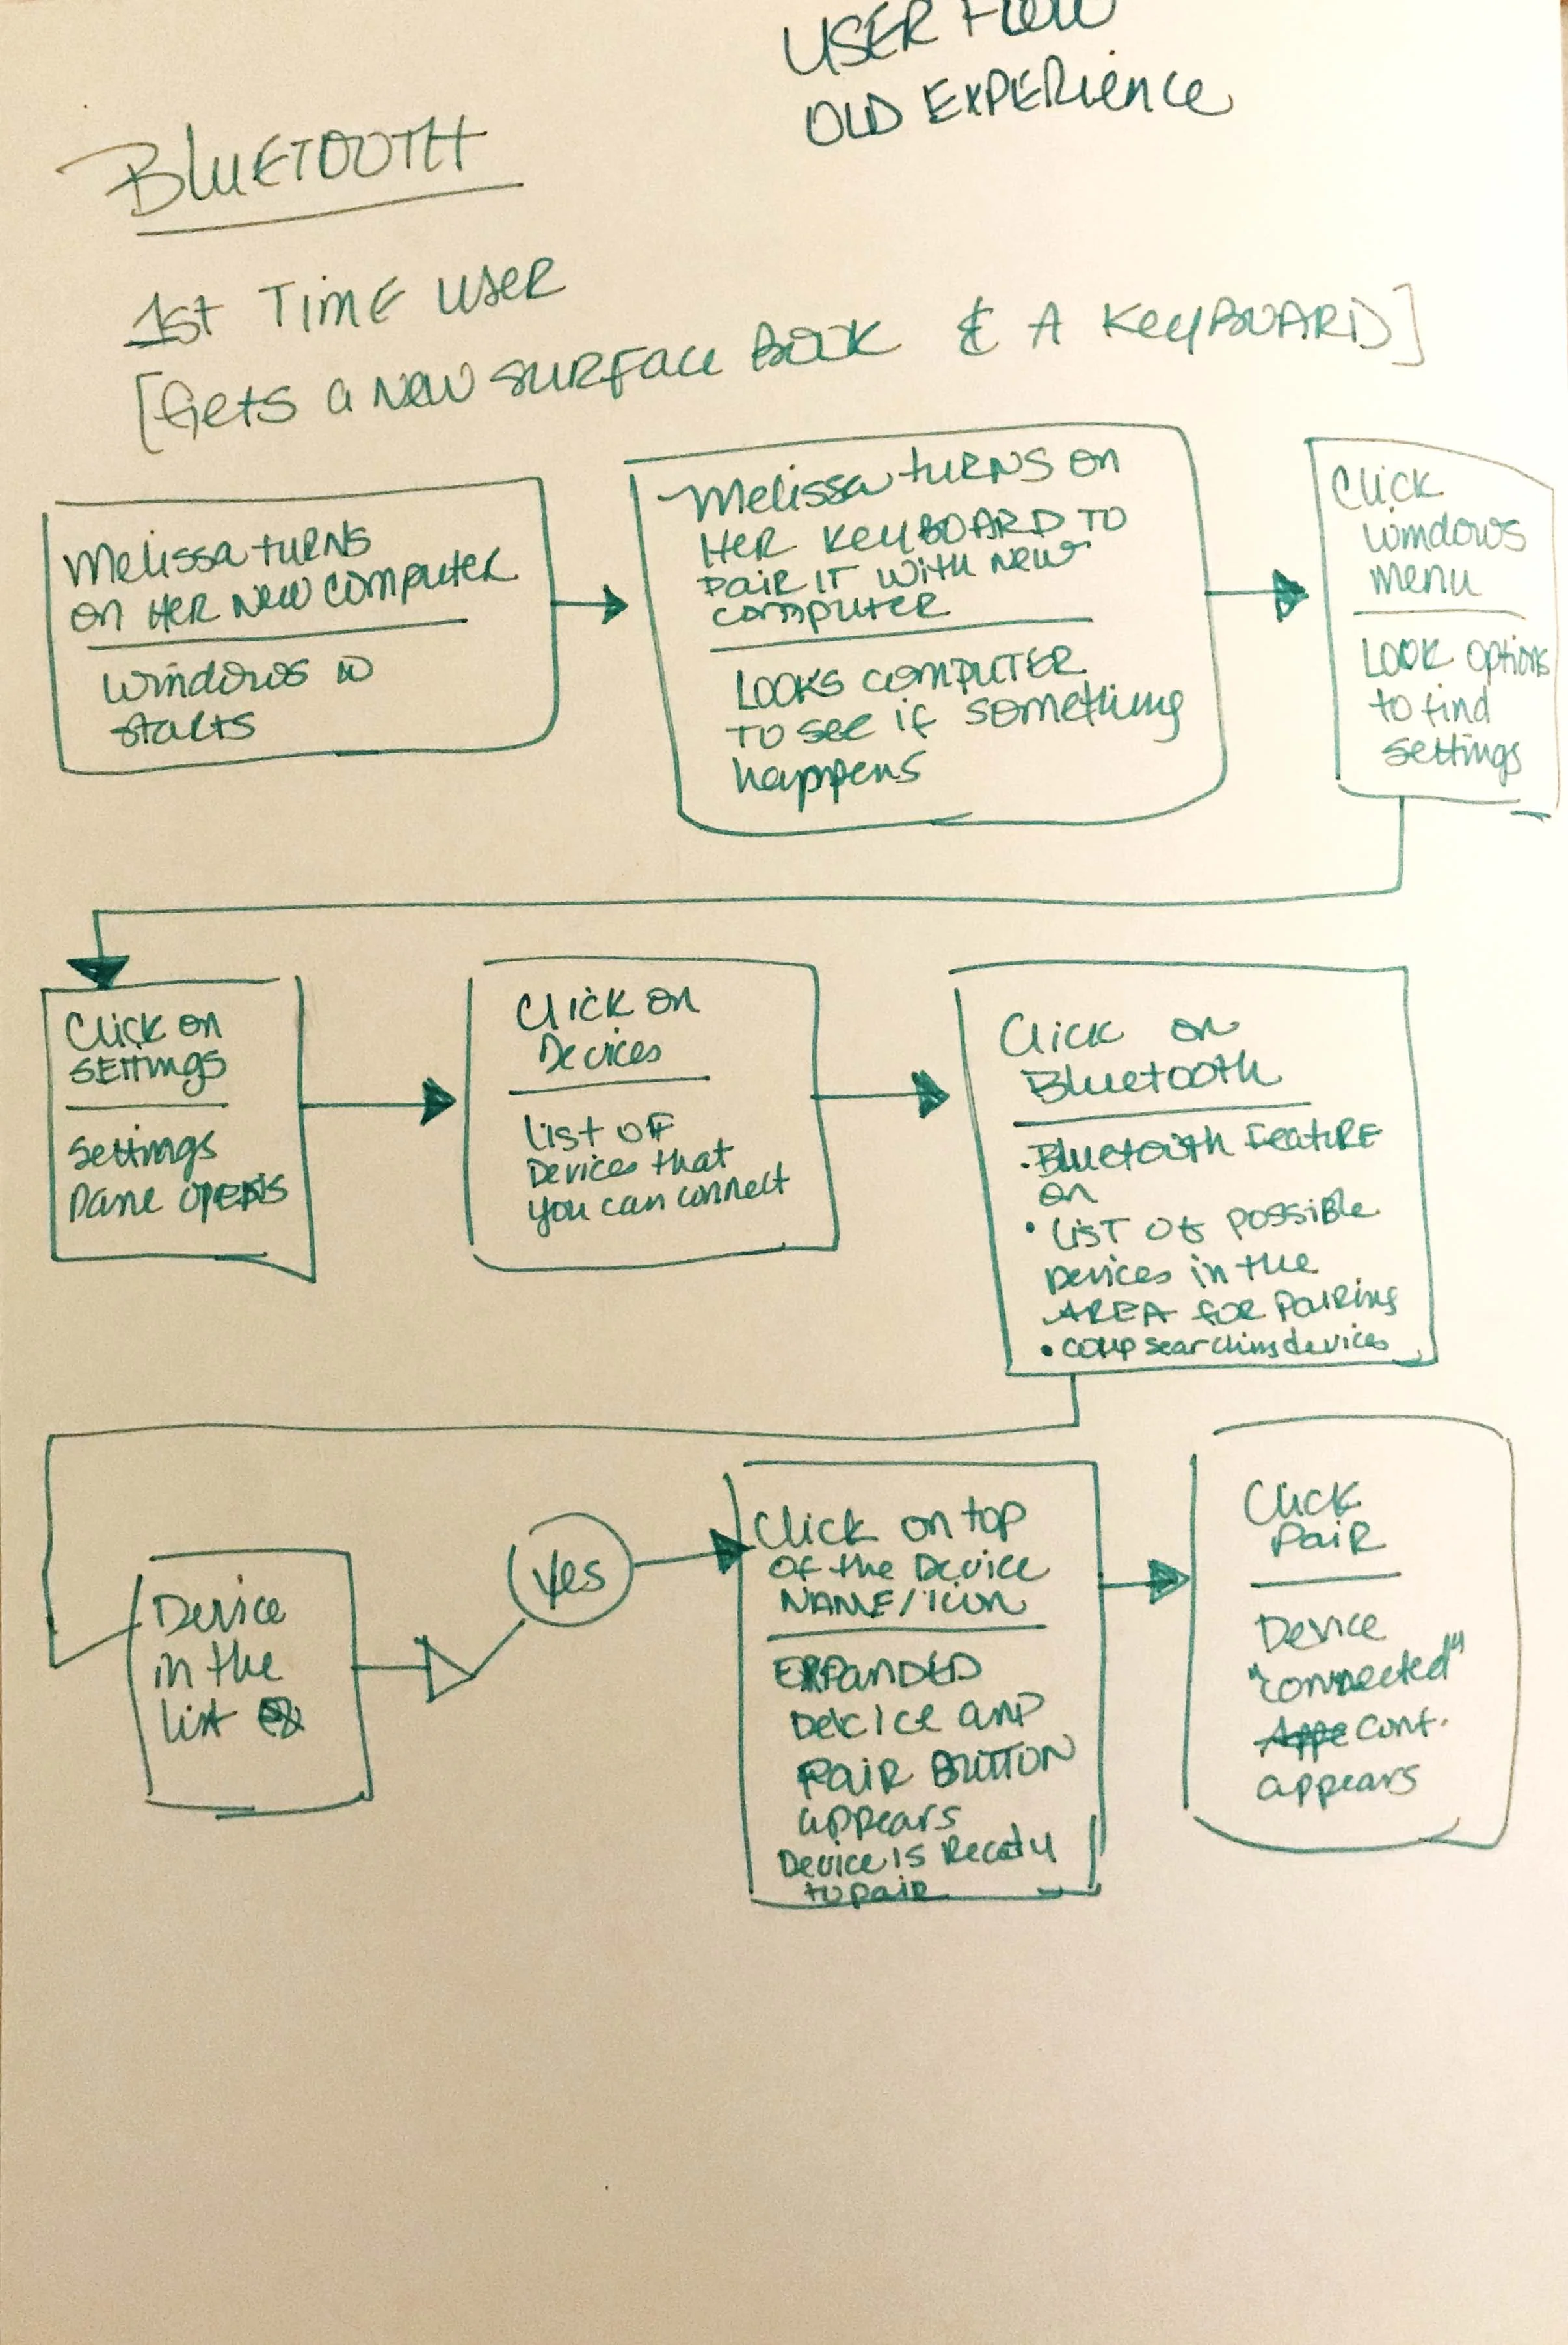 USER FLOW
OLD EXPERIENCE
BLUETOOTH
1st TIME USER
[Gets a NEW SURFACE BOOK & A KEYBOARD]
Melissa TURNS
ON HER NEW COMPUTER
Windows
starts
Melissa TURNS ON
HER KEYBOARD TO
PAIR IT WITH NEW
COMPUTER
LOOKS COMPUTER
TO see if something
happens
Click
Windows
menu
LOOK options
to find
settings
Click on
SETTINGS
Settings
Pane OPENS
Click on
Devices
List OF
Devices that
you can connect
Click on
Bluetooth
• Bluetooth Feature
on
• LIST OF POSSIBLE
Devices in the
AREA FOR PAIRING
• comp searching devices
Device
in the
list
Yes
Click on top
of the Device
NAME/Icon
EXPANDED
Device and
PAIR BUTTON
appears
Device is Ready
to pair
Click
PAIR
Device
"connected"
cont.
appears